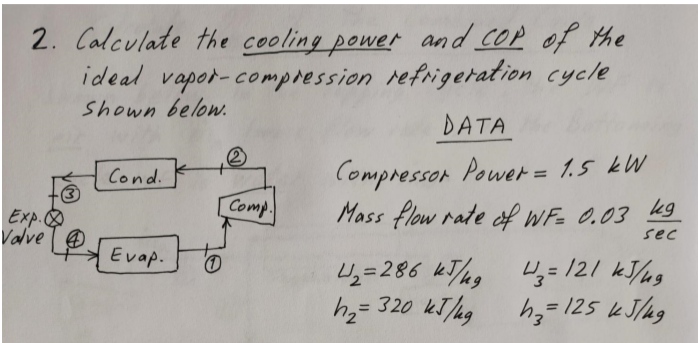 2. Calculate the cooling power and COP of the
ideal vapor-compression refrigeration cycle
shown below.
DATA
Compressor Power = 1.5 kW
Mass flow rate of WF = 0.03 kg/sec
u₂ = 286 kJ/kg u₃ = 121 kJ/kg
h₂ = 320 kJ/kg h₃ = 125 kJ/kg
②
Cond.
③
Comp.
Exp.
Valve
④
Evap.
①